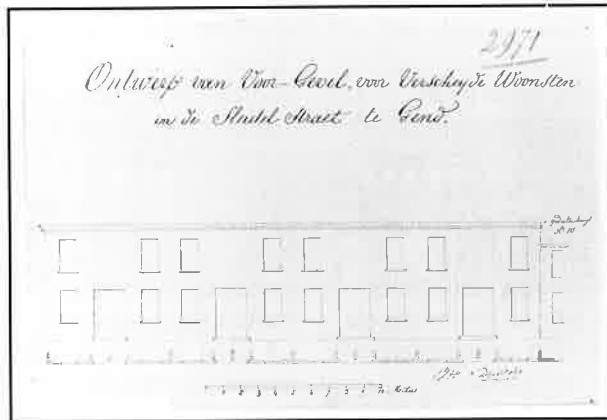 2971
Ontwerp van Voor-Gevel, voor Verscheyde Woonsten
in de Sleutel Straet te Gend.
N° 10
1 2 3 4 5 6 7 8 9 10